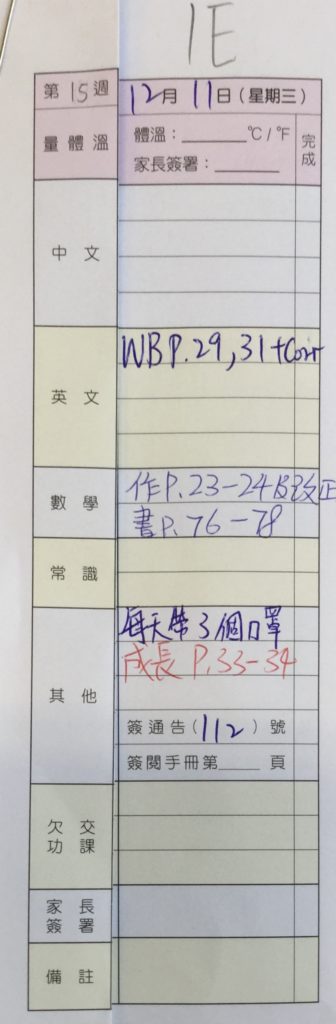 1E
第 15 週 12月 11日 (星期三)
量體溫 體溫：______℃/℉ 完成
家長簽署：______
中文
英文 WB P.29,31+Corr
數學 作P.23-24及改正
書P.76-78
常識
其他 每天帶3個口罩
成長 P.33-34
簽通告(112)號
簽閱手冊第____頁
欠交功課
家長簽署
備註